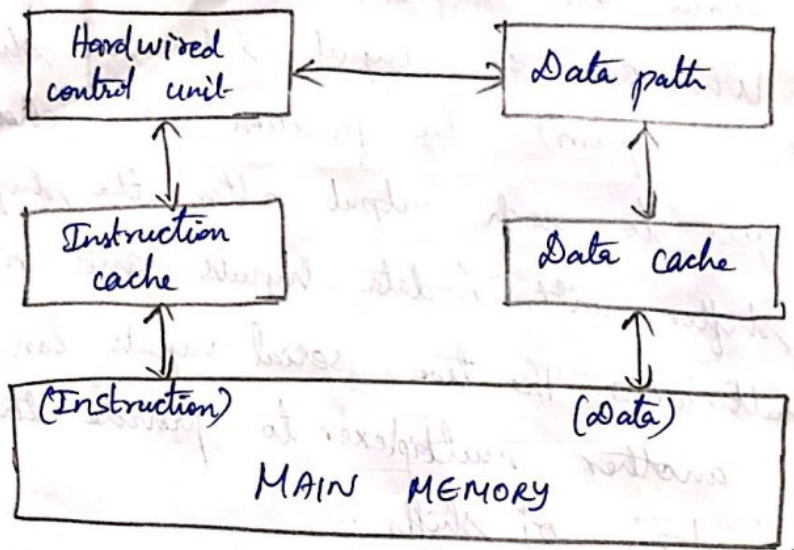 Hardwired
control unit
Data path
Instruction
cache
Data cache
(Instruction)
(Data)
MAIN MEMORY